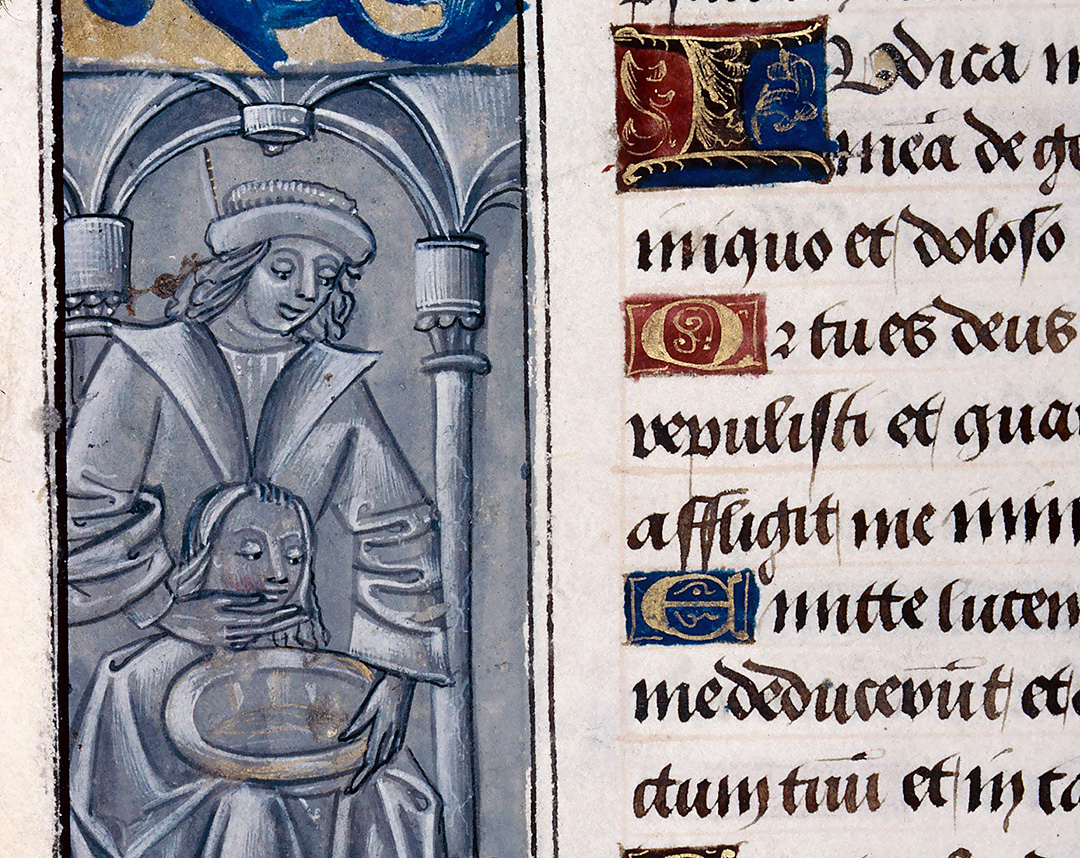 Iudica m
meā de ge
iniquo et doloso
Q2 tu es deus
repulisti et qua
affligit me inim
Emitte lucem
me deduxerūt et
ctum tuū et in ta